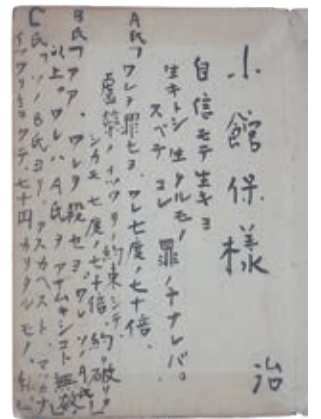 小館保様
治
自信モテ生キヨ
生キトシ生クルモノ
スベテ コレ 罪ノ子ナレバ。
A氏「ワレヲ罪セヨ、ワレ七度ノ七十倍、
虚栄ノイツワリノ約束シテ、
シカモ七度ノ七十倍、約ヲ破リ
B氏「アア、ワレヲ殺セヨ。ワレソノA氏
以上。ワレハA氏ヲアナムキシコト無数
C氏「ソノB氏ヨリ、タスカヘスト、
イツワリ テ、七十円カリタルモノ、私」